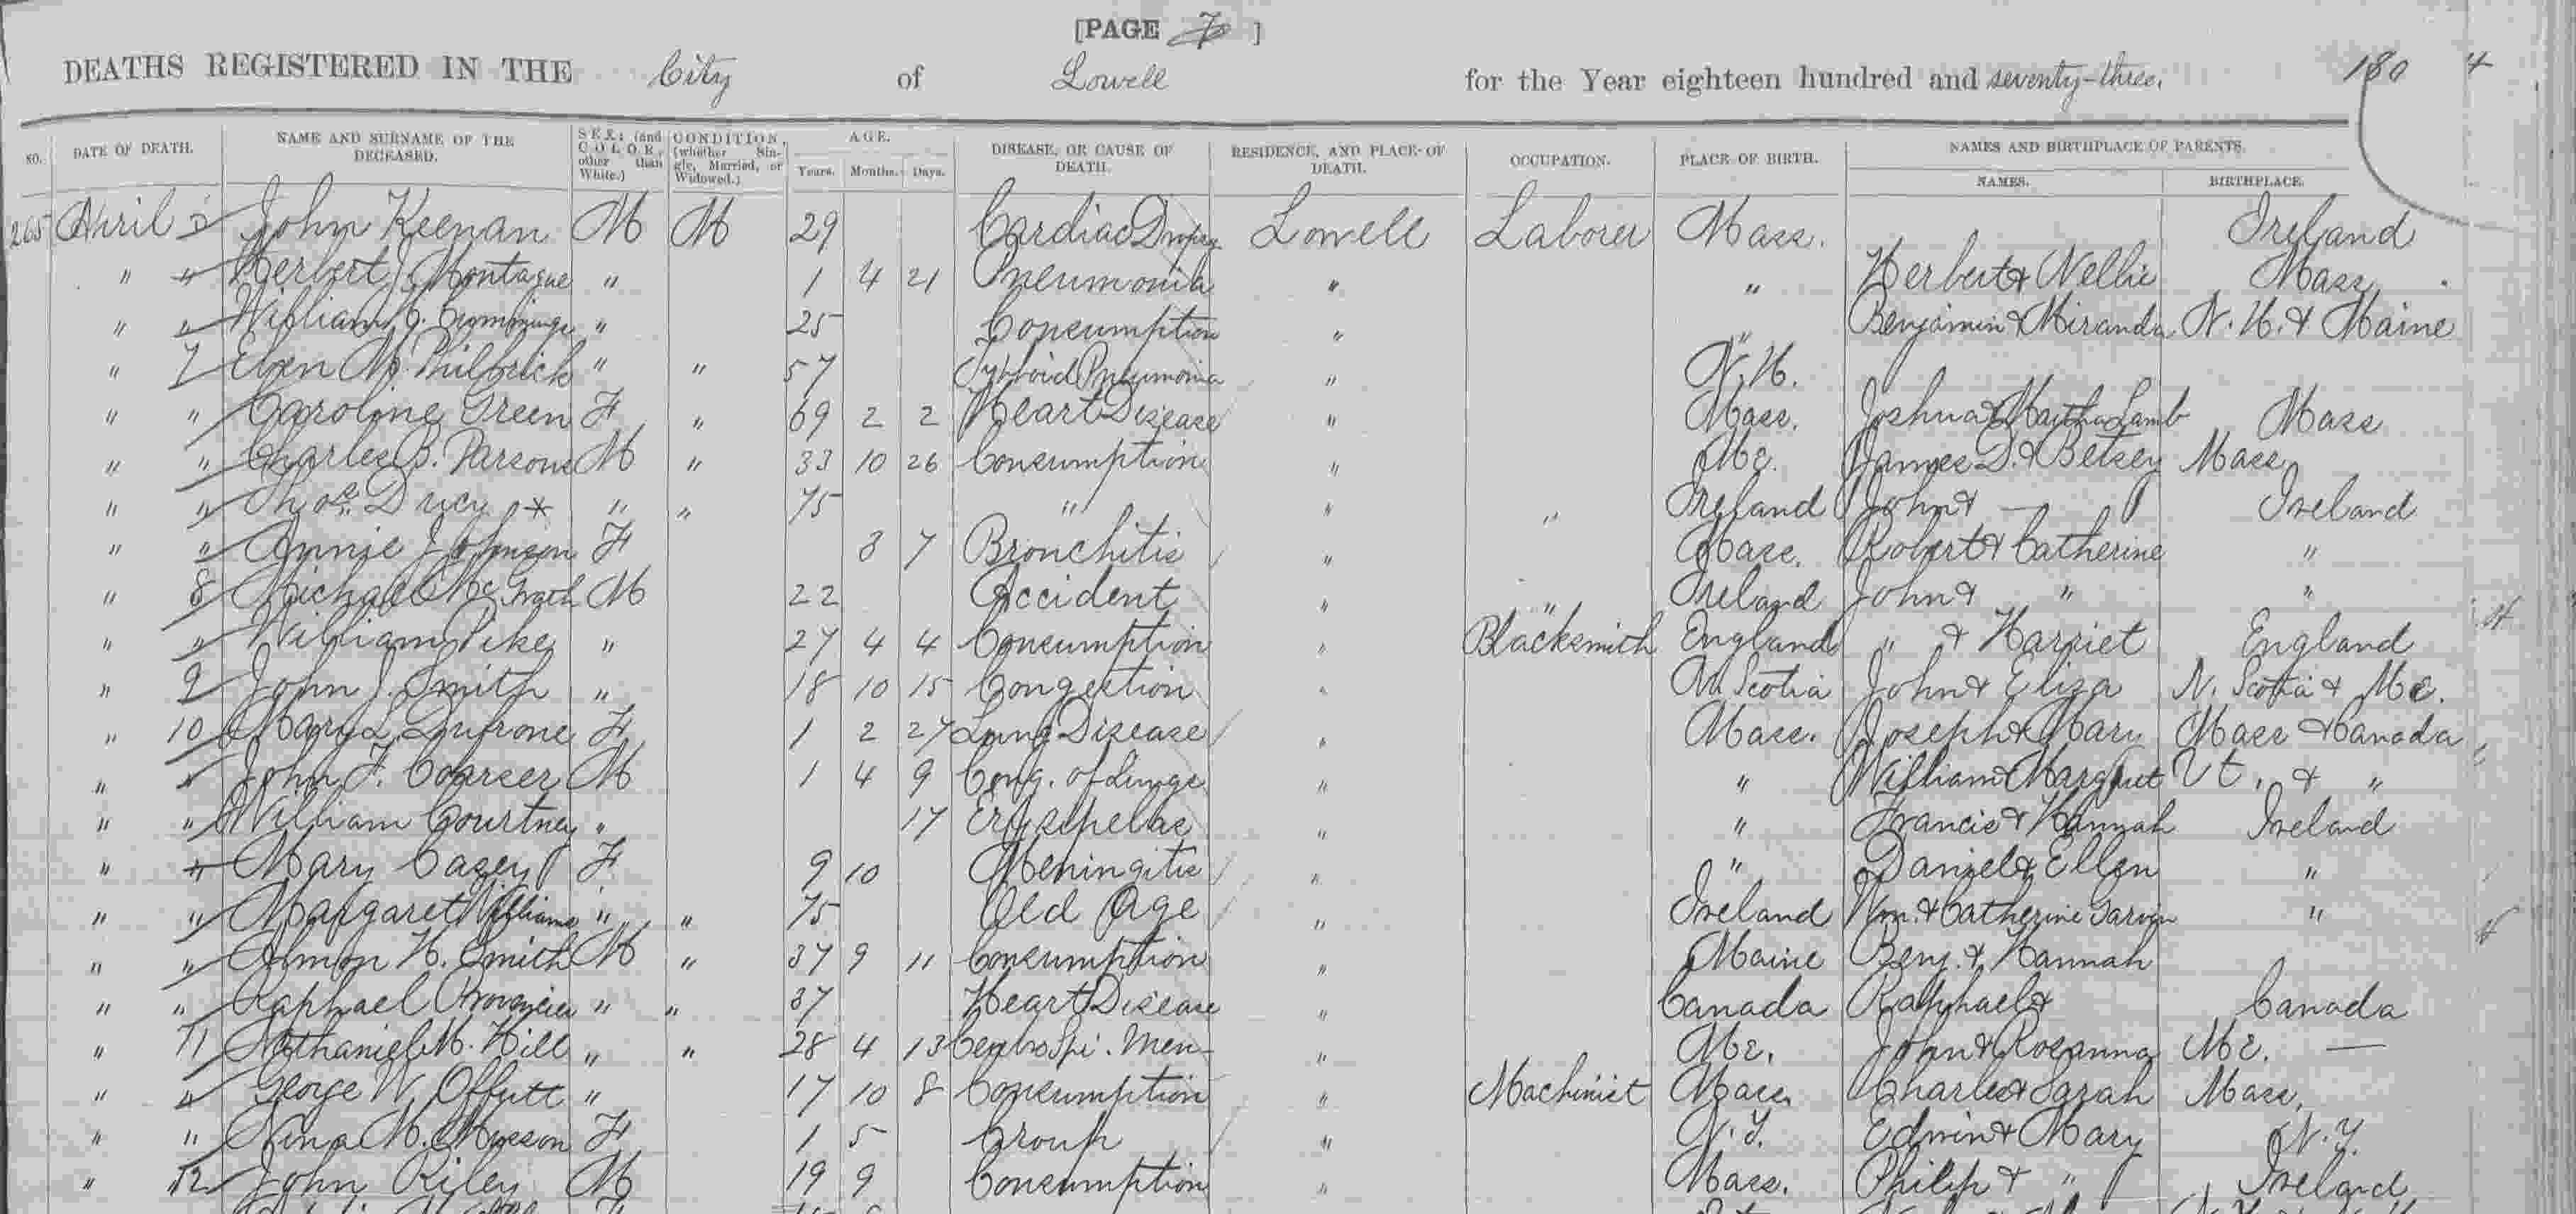 [PAGE ]
DEATHS REGISTERED IN THE City of Lowell for the Year eighteen hundred and seventy-three. 180 4
NO. DATE OF DEATH. NAME AND SURNAME OF THE DECEASED. SEX; (and COLOR, other than White.) CONDITION, (whether Single, Married, or Widowed.) AGE. Years. Months. Days. DISEASE, OR CAUSE OF DEATH. RESIDENCE, AND PLACE OF DEATH. OCCUPATION. PLACE OF BIRTH. NAMES AND BIRTHPLACE OF PARENTS. NAMES. BIRTHPLACE.
265 April 5 John Keenan M M 29 Cardiac Dropsy Lowell Laborer Mass. Ireland
" " Herbert J. Montague " 1 4 21 Pneumonia " " Herbert & Nellie Mass
" " William G. Cummings " 25 Consumption " " Benjamin & Miranda N. H. & Maine
" 7 Eben M. Philbrick " " 57 Typhoid Pneumonia " N. H.
" " Caroline Green F " 69 2 2 Heart Disease " Mass. Joshua & Martha Lamb Mass
" " Charles B. Parsons M " 33 10 26 Consumption " Me. James D. & Betsey Mass
" " Thos. Drury * " " 75 " " " Ireland John & — Ireland
" " Annie Johnson F 8 7 Bronchitis " Mass. Robert & Catherine "
" 8 Michael McGrath M 22 Accident " " Ireland John & " "
" " William Pike " 27 4 4 Consumption " Blacksmith England " & Harriet England
" 9 John J. Smith " 18 10 15 Congestion " N. Scotia John & Eliza N. Scotia & Me.
" 10 Mary L. Dufrone F 1 2 27 Lung Disease " Mass. Joseph & Mary Mass & Canada
" " John F. Coarser M 1 4 9 Cong. of Lungs " " William & Margaret Vt. & "
" " William Courtney " 17 Erysipelas " " Francis & Hannah Ireland
" " Mary Casey F 9 10 Meningitis " " Daniel & Ellen "
" " Margaret Williams " " 75 Old Age " Ireland Wm. & Catherine Garvin "
" " Almon H. Smith M " 37 9 11 Consumption " Maine Benj. & Hannah
" " Raphael Provencier " " 37 Heart Disease " Canada Raphael & Canada
" 11 Nathaniel M. Hill " " 28 4 13 Cerebro Spi. Men- " Me. John & Rosanna Me. —
" " George W. Offutt " 17 10 8 Consumption " Machinist Mass. Charles & Sarah Mass.
" " Nina M. Musson F 1 5 Croup " N. Y. Edwin & Mary N. Y.
" 12 John Riley M 19 9 Consumption " Mass. Philip & " Ireland